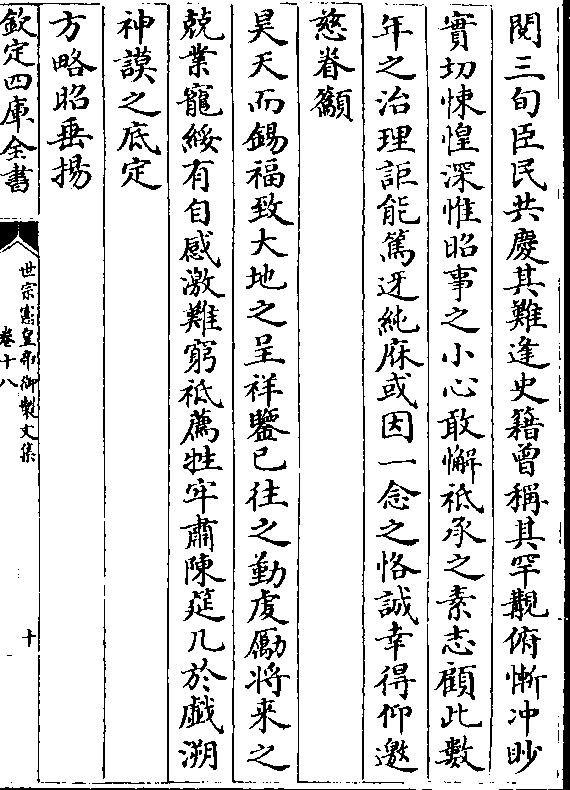 閲三旬臣民共慶其難逢史籍曾稱其罕覯俯慚冲眇
實切悚惶深惟昭事之小心敢懈祗承之素志顧此數
年之治理詎能篤迓純庥或因一念之恪誠幸得仰邀
慈眷籲
昊天而錫福致大地之呈祥鑒已往之勤䖍勵将来之
兢業寵綏有自感激難窮祗薦牲牢肅陳筵几於戯溯
神謨之底定
方略昭垂揚
欽定四庫全書
世宗憲皇帝御製文集
卷十八
十